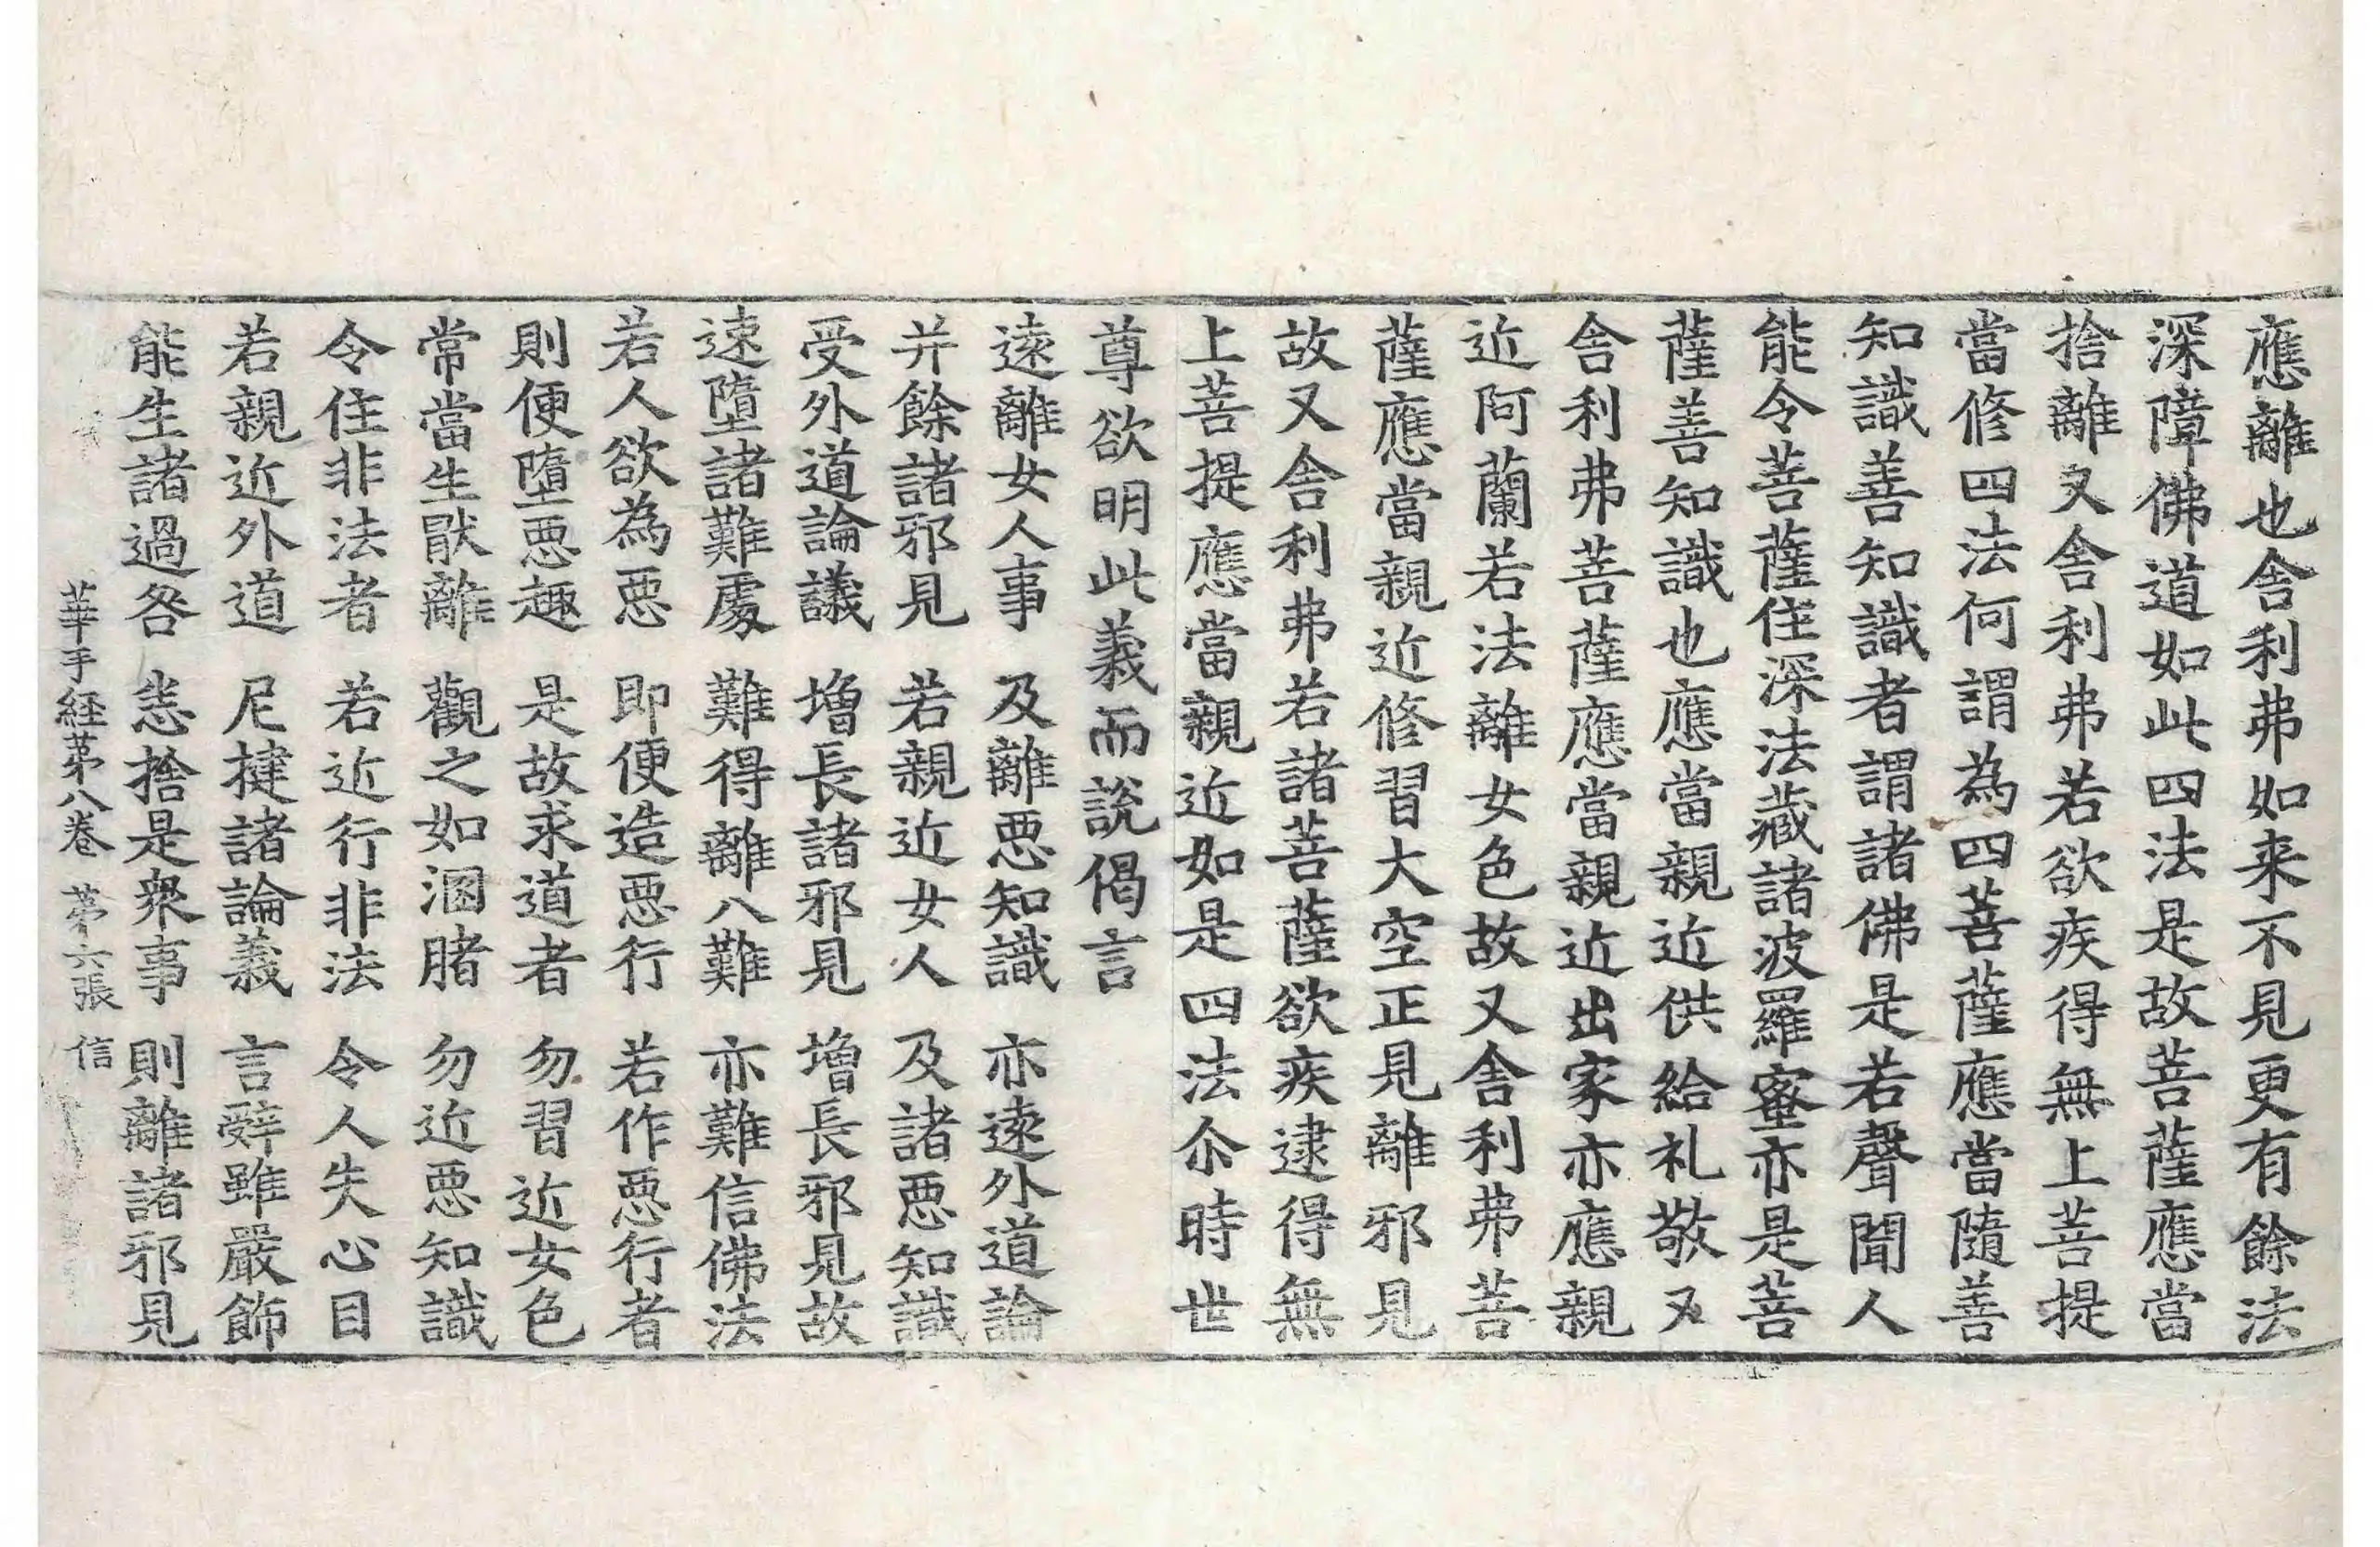 應離也舎利弗如来不見更有餘法
深障佛道如此四法是故菩薩應當
捨離又舎利弗若欲疾得無上菩提
當修四法何謂為四菩薩應當隨善
知識善知識者謂諸佛是若聲聞人
能令菩薩住深法藏諸波羅蜜亦是菩
薩善知識也應當親近供給礼敬又
舎利弗菩薩應當親近出家亦應親
近阿蘭若法離女色故又舎利弗菩
薩應當親近修習大空正見離邪見
故又舎利弗若諸菩薩欲疾逮得無
上菩提應當親近如是四法尒時世
尊欲明此義而說偈言
遠離女人事 及離惡知識 亦遠外道論
并餘諸邪見 若親近女人 及諸惡知識
受外道論議 增長諸邪見 增長邪見故
速墮諸難處 難得離八難 亦難信佛法
若人欲為惡 即便造惡行 若作惡行者
則便墮惡趣 是故求道者 勿習近女色
常當生猒離 觀之如溷腤 勿近惡知識
令住非法者 若近行非法 令人失心目
若親近外道 尼揵諸論義 言辭雖嚴飾
能生諸過咎 悉捨是衆事 則離諸邪見
華手経苐八卷 苐六張 信